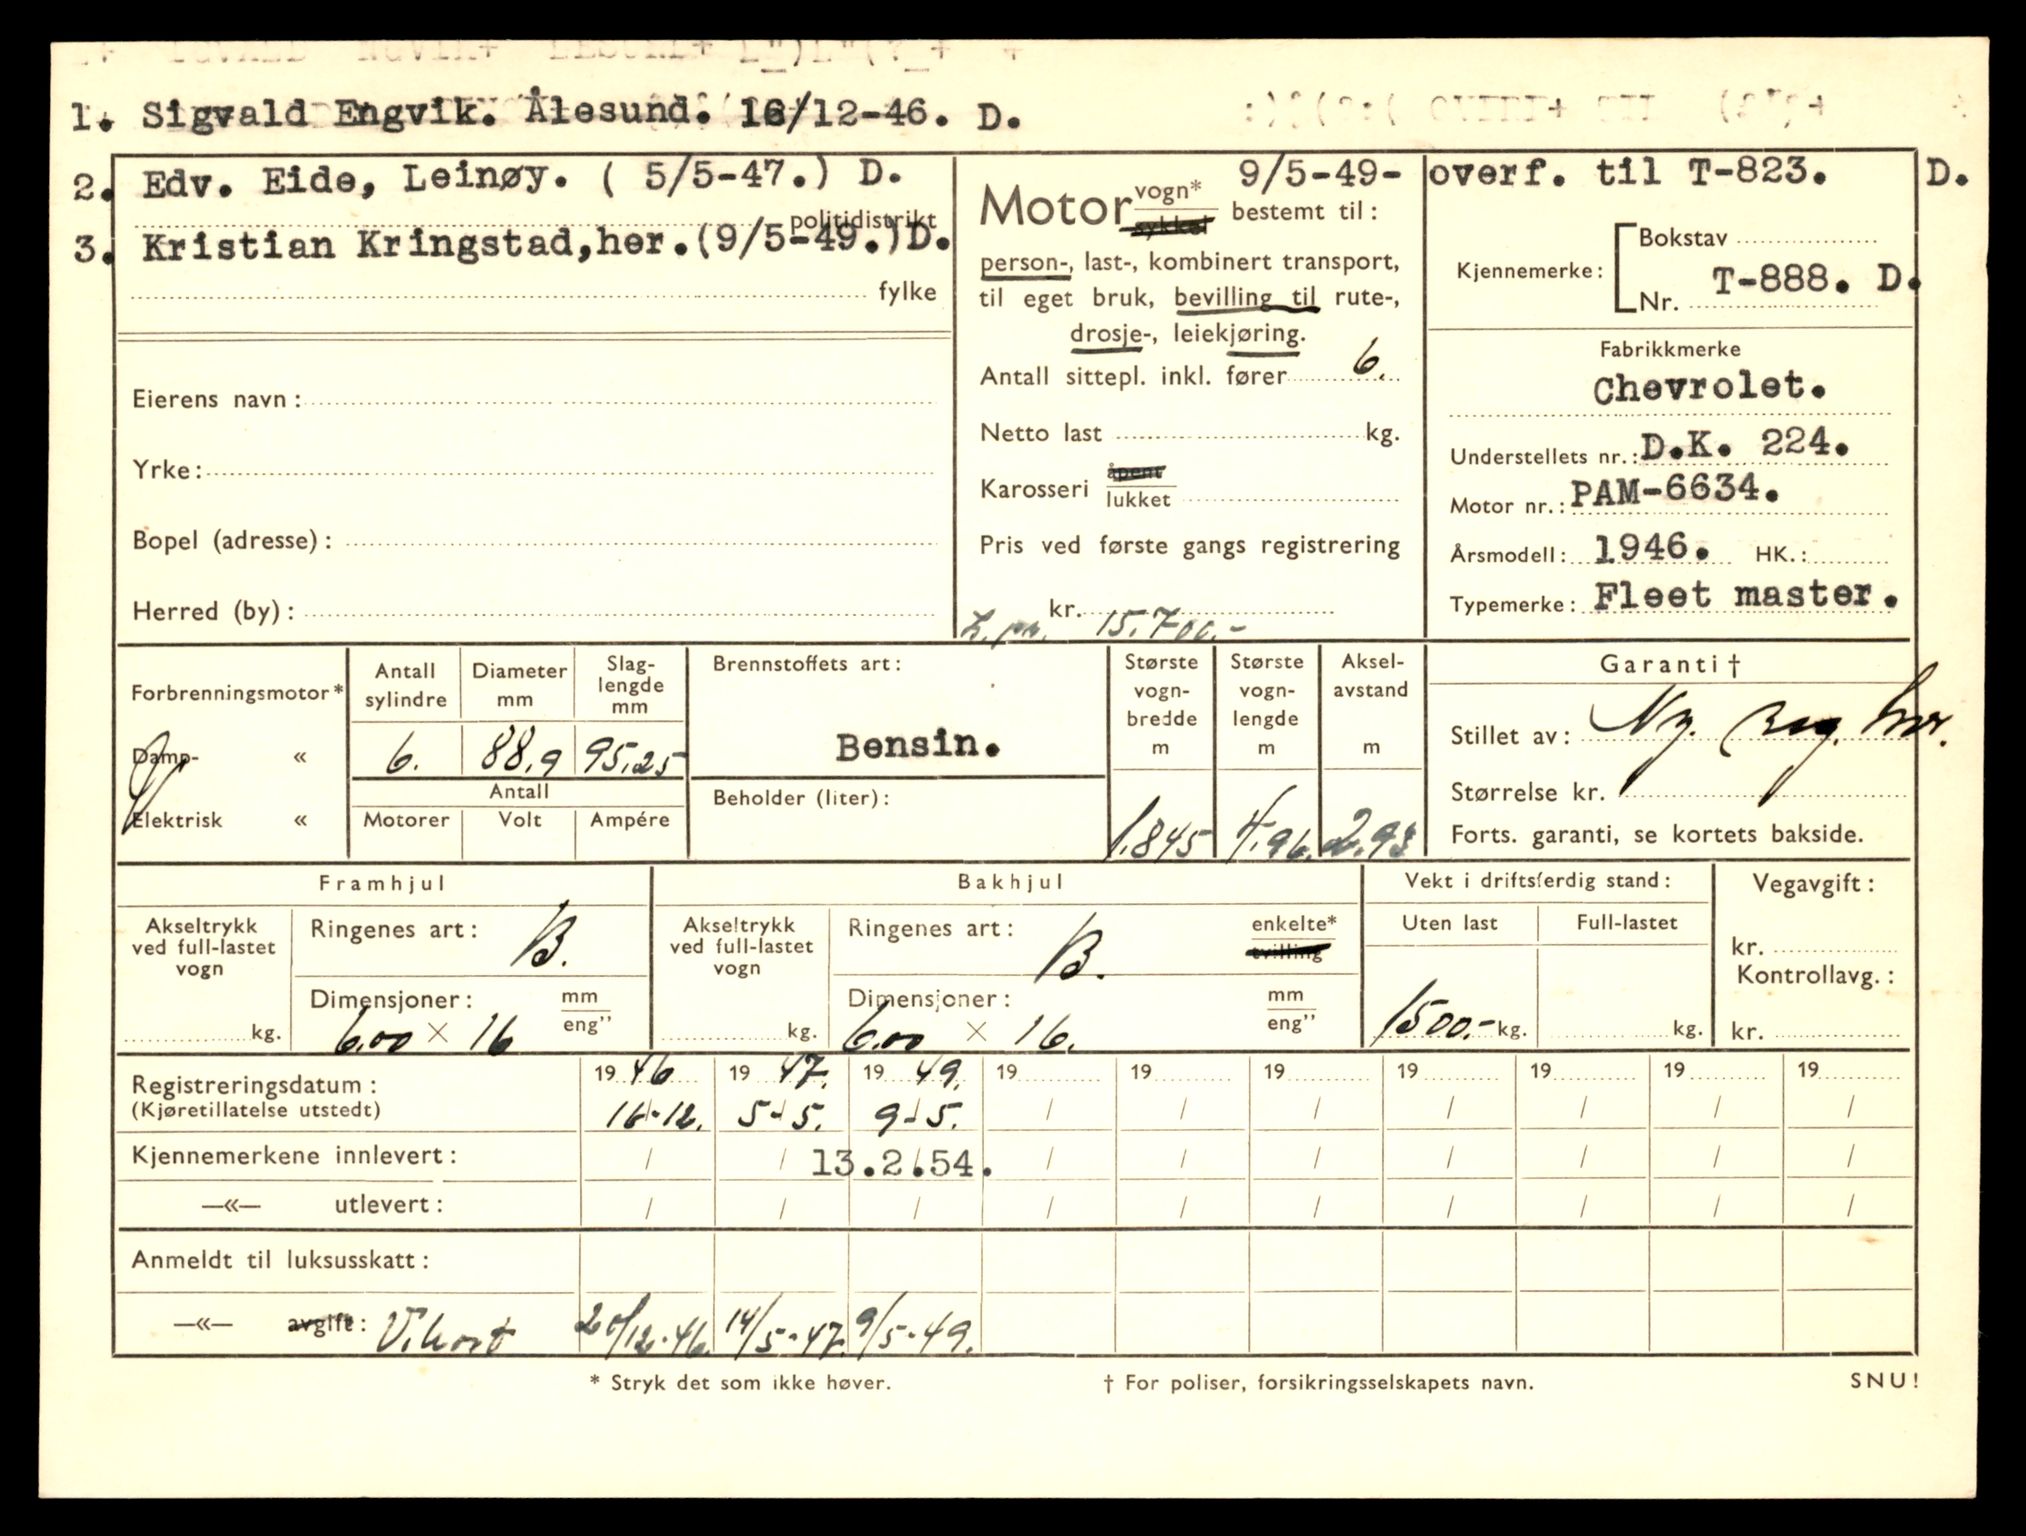 1. Sigvald Engvik. Ålesund. 16/12-46. D.
2. Edv. Eide, Leinøy. ( 5/5-47.) D.
politidistrikt
3. Kristian Kringstad,her.(9/5-49.)D.
fylke
Eierens navn:
Yrke:
Bopel (adresse):
Herred (by):
9/5-49- overf. til T-823. D.
Motor vogn* sykkel bestemt til:
person-, last-, kombinert transport,
til eget bruk, bevilling til rute-,
drosje-, leiekjøring.
Antall sittepl. inkl. fører 6.
Netto last kg.
Karosseri åpent lukket
Pris ved første gangs registrering
kr. 15.700.-
Kjennemerke: Bokstav
Nr. T-888. D.
Fabrikkmerke
Chevrolet.
Understellets nr.: D.K. 224.
Motor nr.: PAM-6634.
Årsmodell: 1946. HK.:
Typemerke: Fleet master.
Forbrenningsmotor*
Damp- «
Elektrisk «
Antall sylindre 6.
Diameter mm 88,9
Slag-lengde mm 95,25
Antall
Motorer Volt Ampére
Brennstoffets art:
Bensin.
Beholder (liter):
Største vogn-bredde m 1.845
Største vogn-lengde m 4.96.
Aksel-avstand m 2.93
Garanti†
Stillet av: Ny. reg. her.
Størrelse kr.
Forts. garanti, se kortets bakside.
Framhjul
Akseltrykk ved full-lastet vogn kg.
Ringenes art: B.
Dimensjoner: mm eng”
6.00 × 16
Bakhjul
Akseltrykk ved full-lastet vogn kg.
Ringenes art: B. enkelte* tvilling
Dimensjoner: mm eng”
6.00 × 16.
Vekt i driftsferdig stand:
Uten last Full-lastet
1500.- kg. kg.
Vegavgift:
kr.
Kontrollavg.:
kr.
Registreringsdatum: 19 46 19 47. 19 49. 19 19 19 19 19 19 19
(Kjøretillatelse utstedt) 16-12. 5-5. 9-5. / / / / / / /
Kjennemerkene innlevert: / / 13.2.54. / / / / / / /
—«— utlevert: / / / / / / / / / /
Anmeldt til luksusskatt:
—«— avgift: V.kort 20/12-46. 14/5-47. 9/5-49.
* Stryk det som ikke høver.
† For poliser, forsikringsselskapets navn.
SNU!